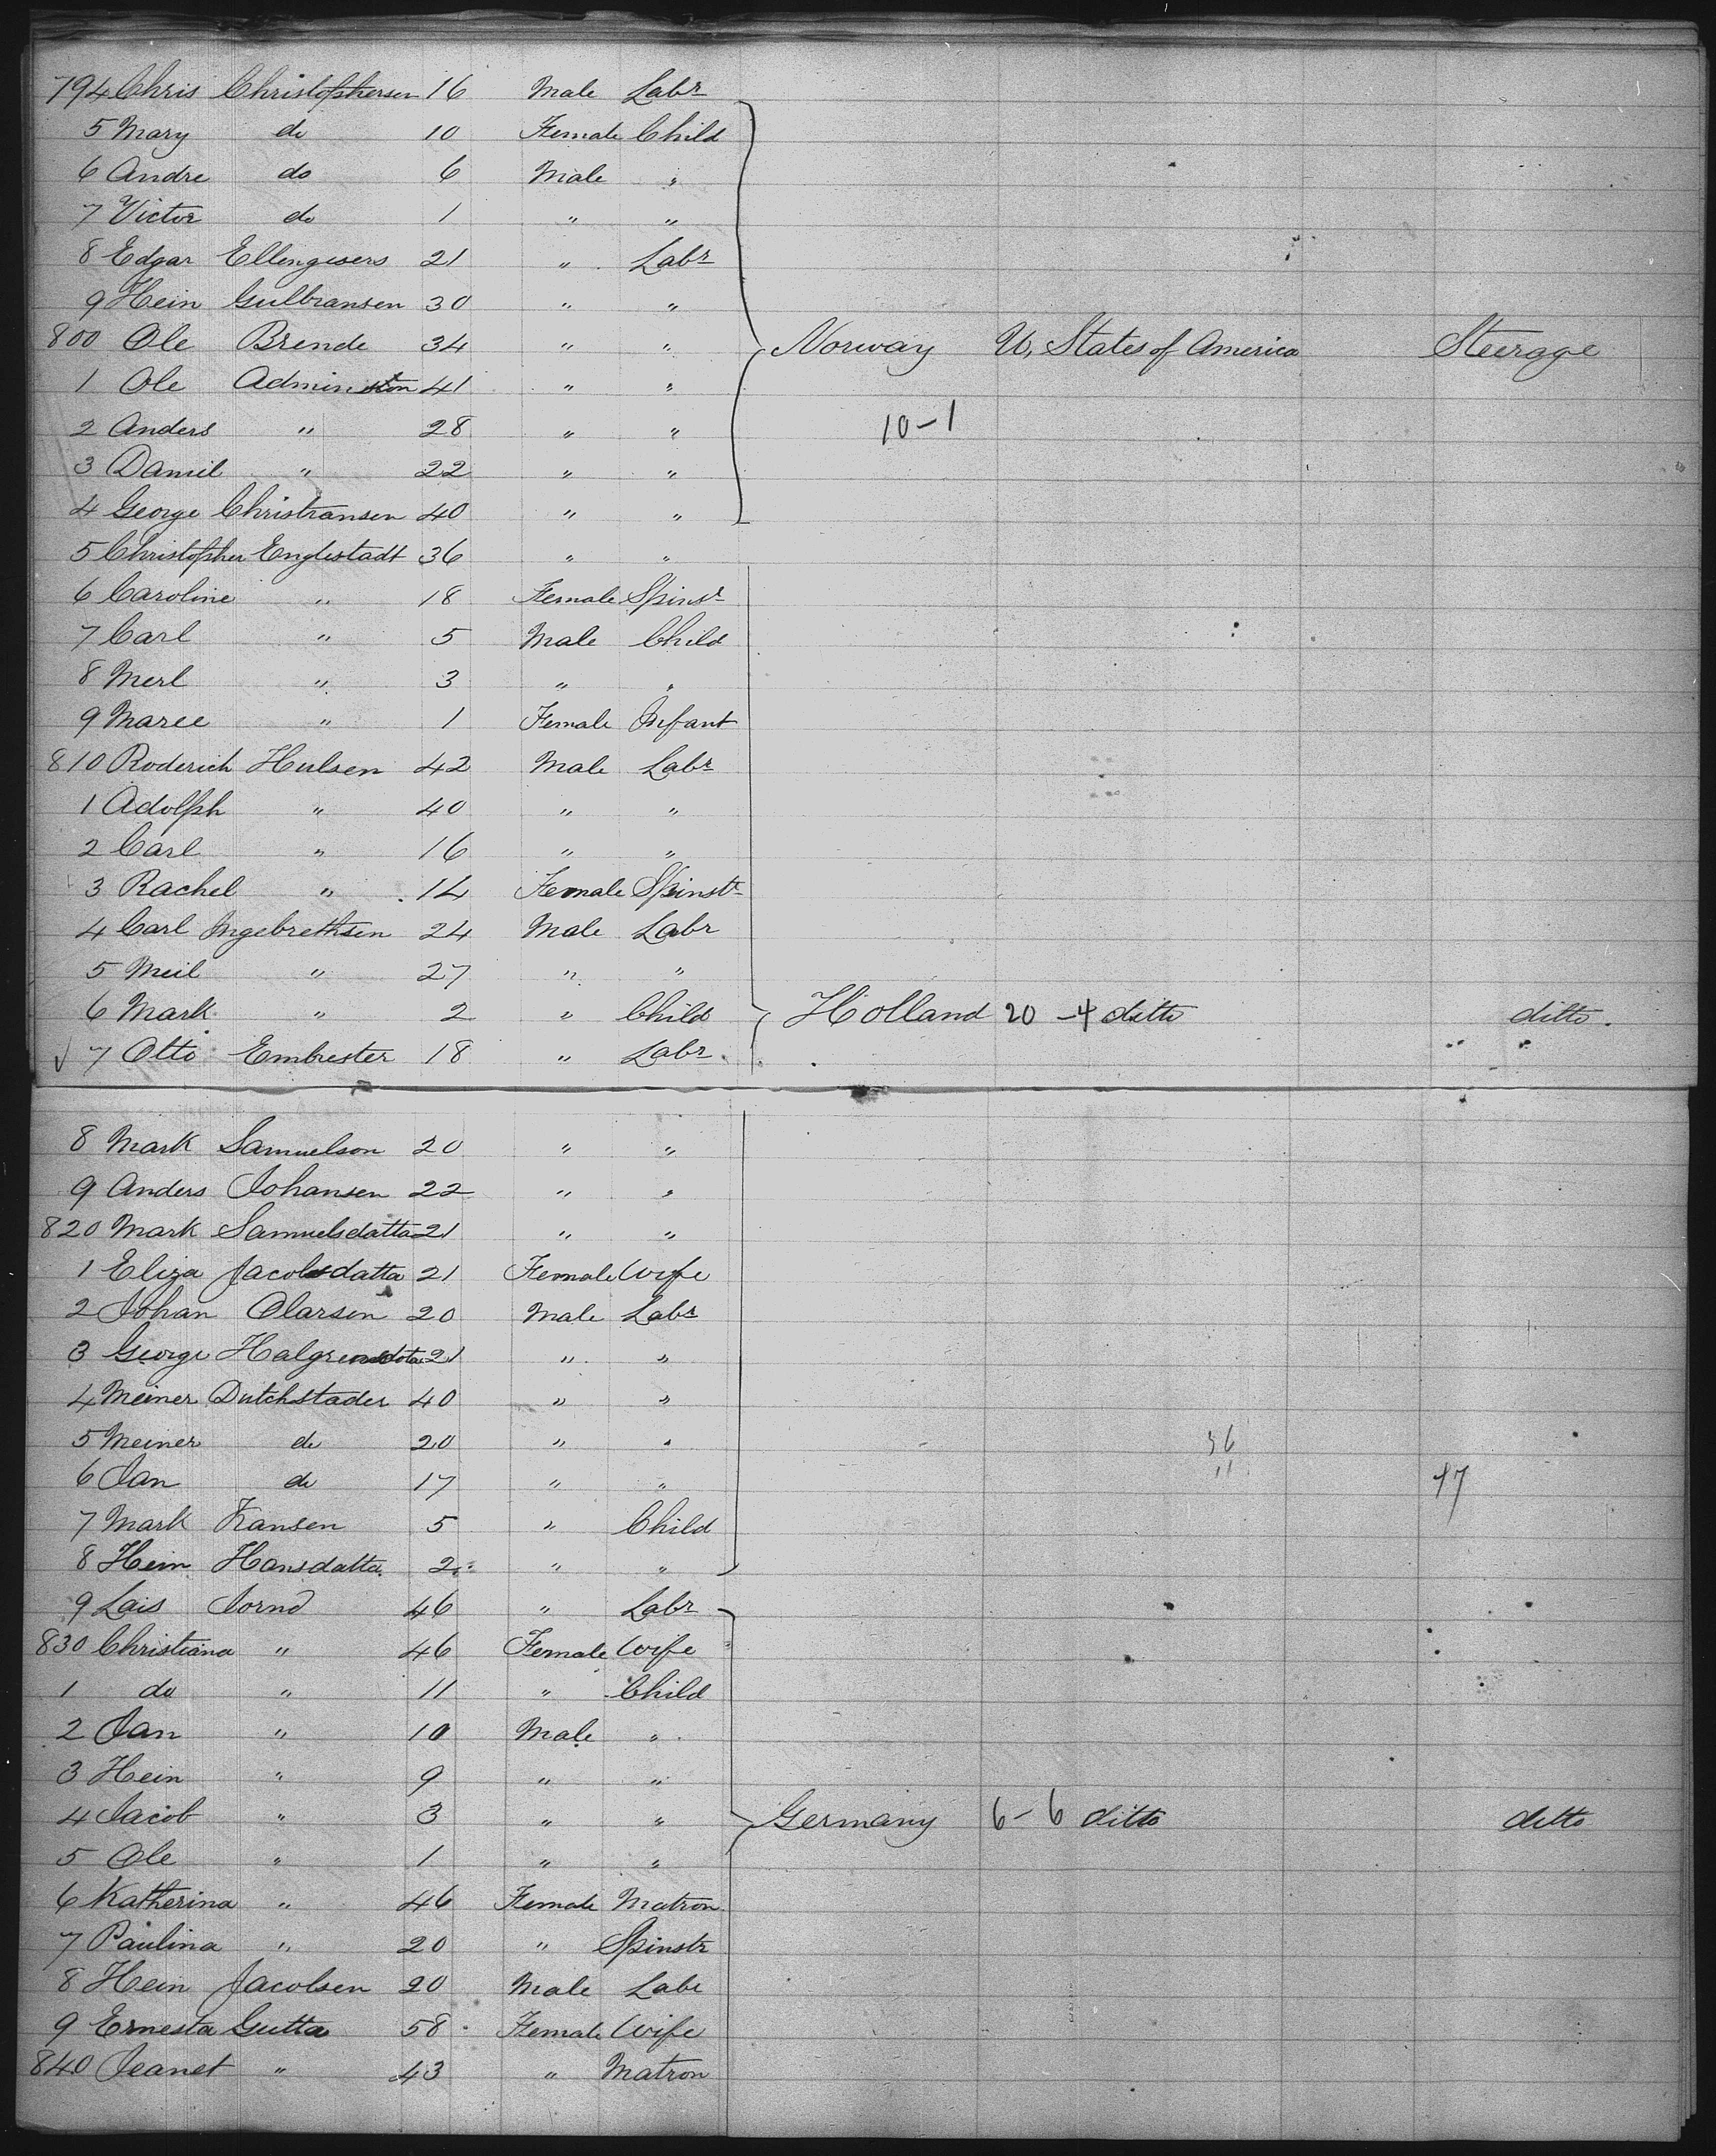 794 Chris Christophersen 16 Male Labr
5 Mary do 10 Female Child
6 Andre do 6 Male "
7 Victor do 1 " "
8 Edgar Ellengesers 21 " Labr
9 Hein Gulbransen 30 " "
800 Ole Brende 34 " " Norway U, States of America Steerage
1 Ole Adminston 41 " "
2 Anders " 28 " " 10-1
3 Daniel " 22 " "
4 George Christiansen 40 " "
5 Christopher Englestadt 36 " "
6 Caroline " 18 Female Spinsr
7 Carl " 5 Male Child
8 Merl " 3 " "
9 Maree " 1 Female Infant
810 Roderich Hulsen 42 Male Labr
1 Adolph " 40 " "
2 Carl " 16 " "
3 Rachel " 14 Female Spinstr
4 Carl Ingebrethsen 24 Male Labr
5 Meil " 27 " "
6 Mark " 2 " Child Holland 20 -4 ditto ditto.
7 Otto Embrester 18 " Labr.
8 Mark Samuelson 20 " "
9 Anders Johansen 22 " "
820 Mark Samuelsdatta 21 " "
1 Eliza Jacobsdatta 21 Female Wife
2 Johan Olarsen 20 Male Labr
3 George 21 " "
4 Meiner Dutchstader 40 " "
5 Meiner do 20 " " 36
6 Jan do 17 " " 11 17
7 Mark Hansen 5 " Child
8 Hein Hansdatta 2 " "
9 Lais Jornd 46 " Labr
830 Christiana " 46 Female Wife
1 do " 11 " Child
2 Jan " 10 Male "
3 Hein " 9 " "
4 Jacob " 3 " " Germany 6-6 ditto ditto
5 Ole " 1 " "
6 Katherina " 46 Female Matron
7 Paulina " 20 " Spinstr
8 Hein Jacobsen 20 Male Labr
9 Ernesta Gutta 58 Female Wife
840 Jeanet " 43 " Matron